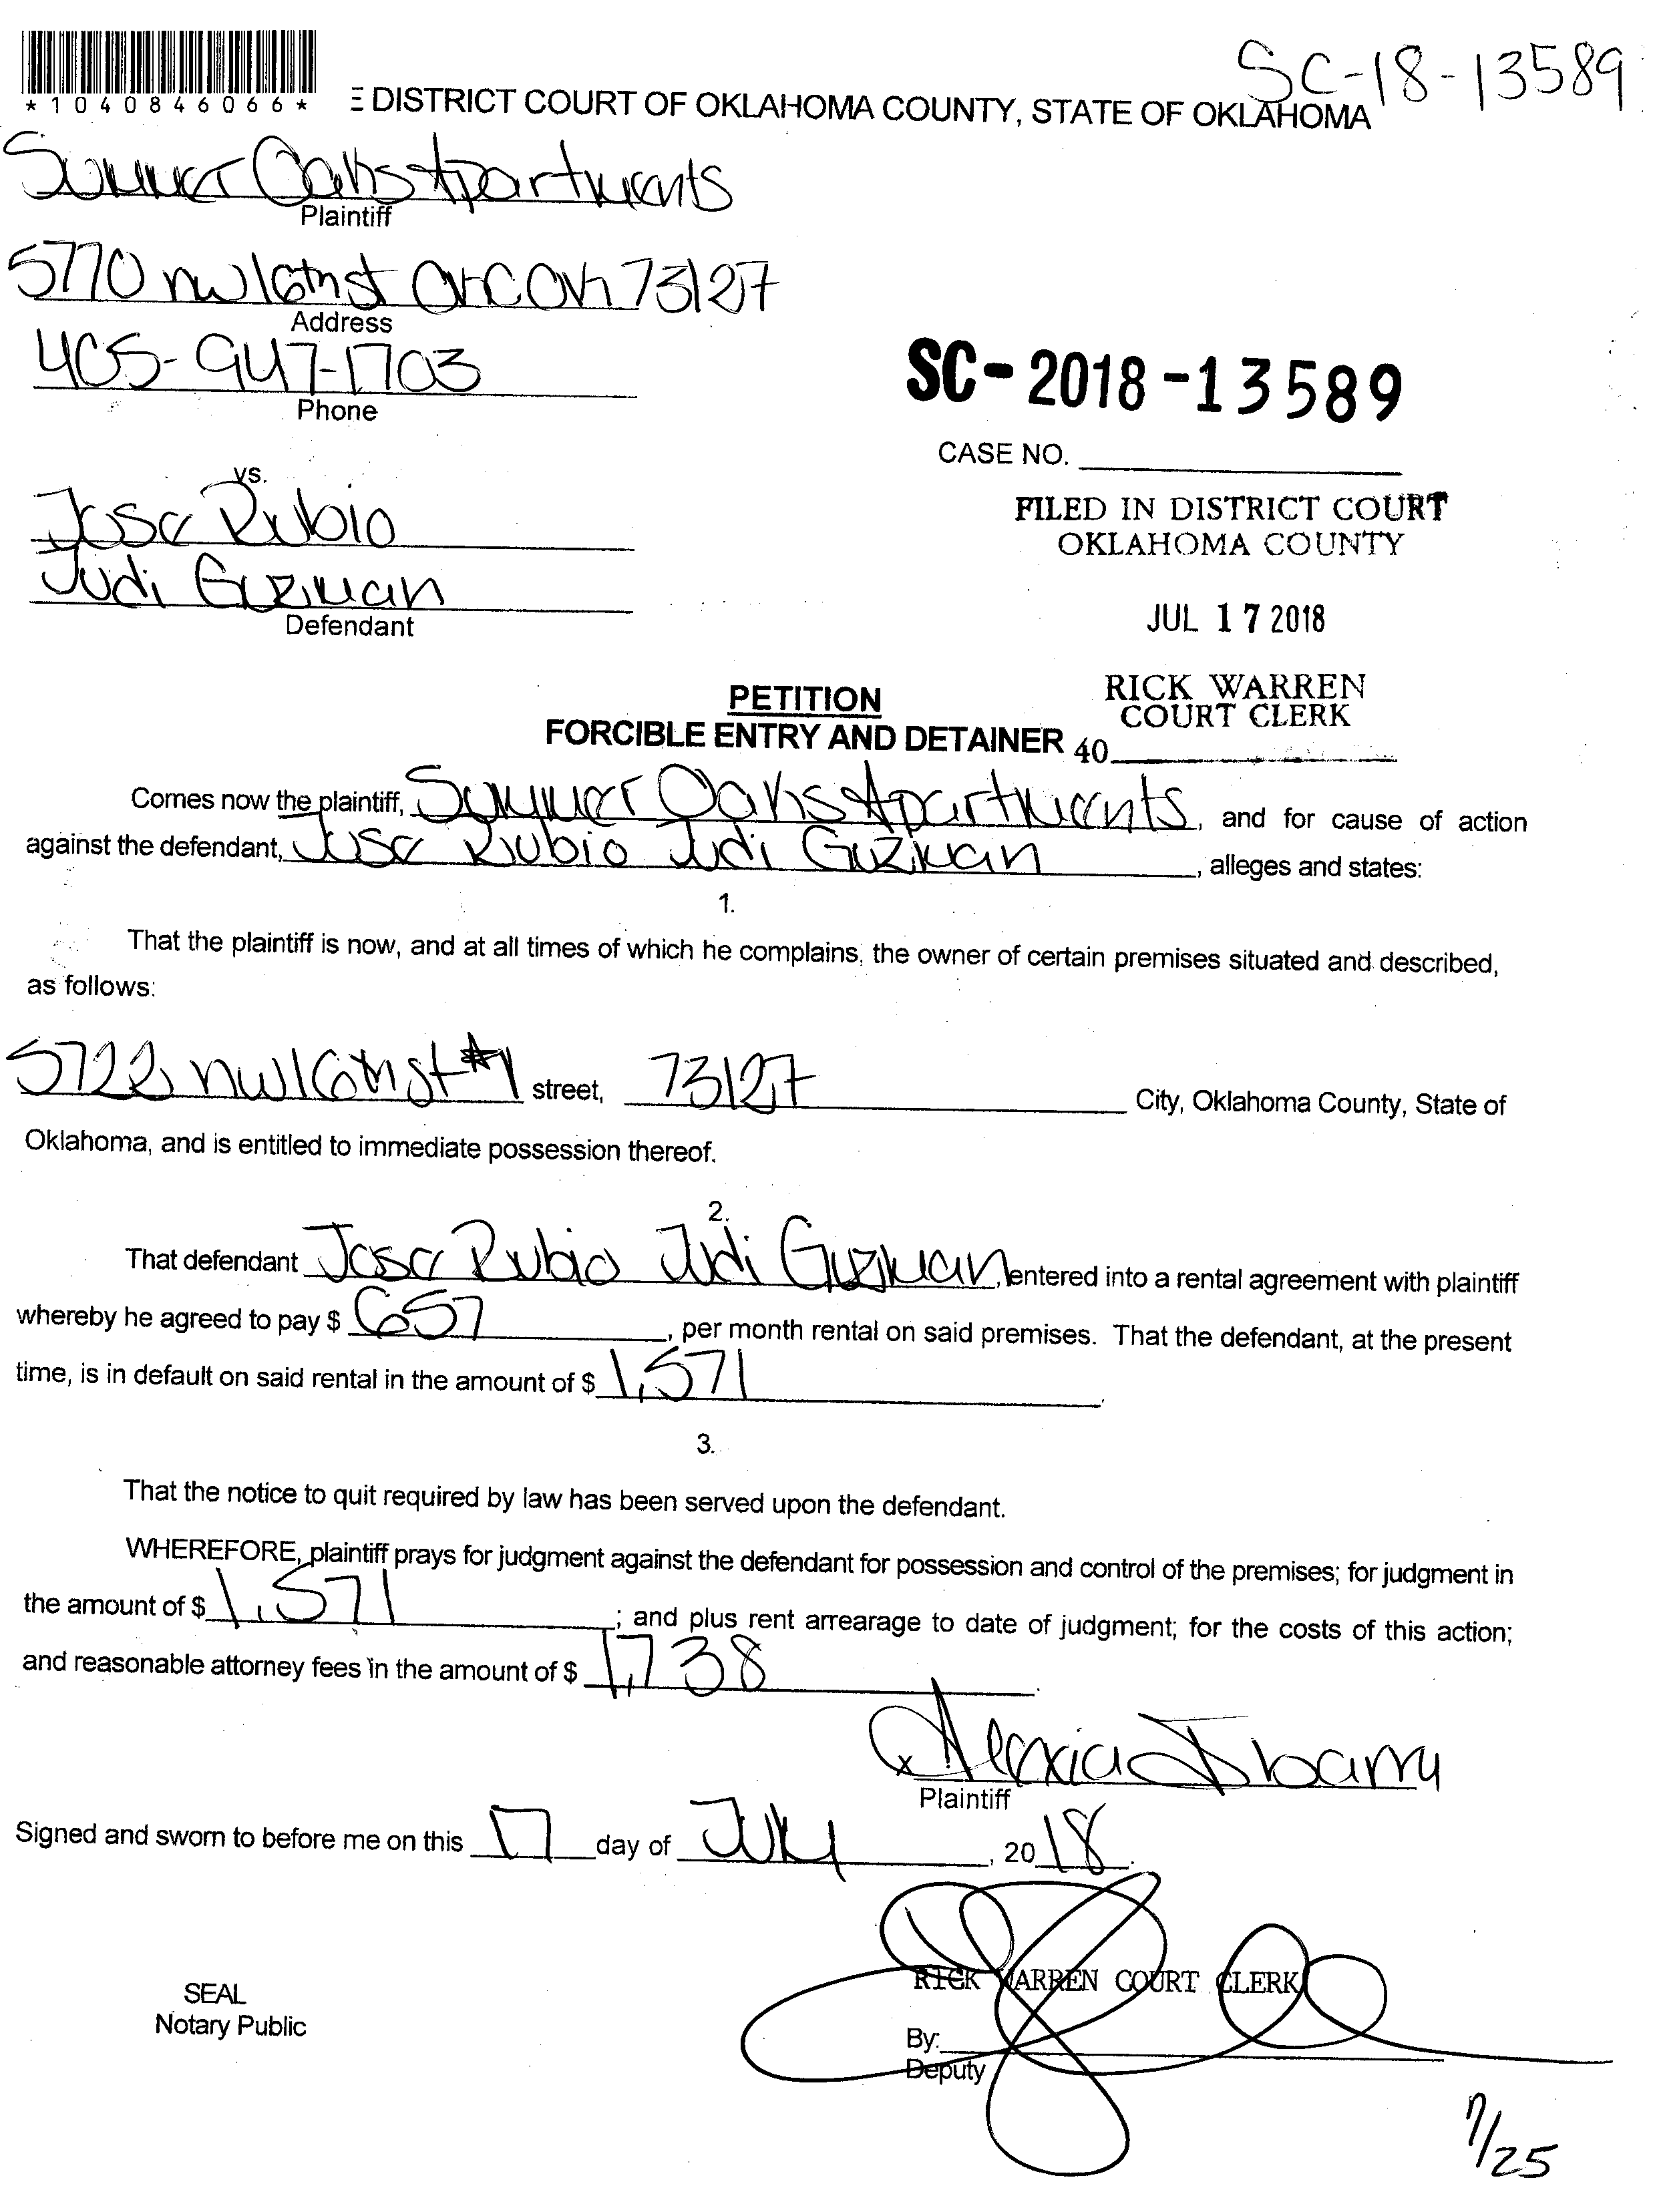 SC-18-13589
*1040846066*
E DISTRICT COURT OF OKLAHOMA COUNTY, STATE OF OKLAHOMA
Summer Oaks Apartments
Plaintiff
5770 nw 16th st OKC OK 73127
Address
405-947-1703
Phone
SC-2018-13589
CASE NO.
vs.
Jose Rubio
Judi Guzman
Defendant
FILED IN DISTRICT COURT
OKLAHOMA COUNTY
JUL 17 2018
RICK WARREN
COURT CLERK
40
PETITION
FORCIBLE ENTRY AND DETAINER
Comes now the plaintiff, Summer Oaks Apartments, and for cause of action
against the defendant, Jose Rubio Judi Guzman, alleges and states:
1.
That the plaintiff is now, and at all times of which he complains, the owner of certain premises situated and described,
as follows:
5722 nw 16th st #1 street, 73127 City, Oklahoma County, State of
Oklahoma, and is entitled to immediate possession thereof.
2.
That defendant Jose Rubio Judi Guzman, entered into a rental agreement with plaintiff
whereby he agreed to pay $ 657, per month rental on said premises. That the defendant, at the present
time, is in default on said rental in the amount of $ 1,571.
3.
That the notice to quit required by law has been served upon the defendant.
WHEREFORE, plaintiff prays for judgment against the defendant for possession and control of the premises; for judgment in
the amount of $ 1,571; and plus rent arrearage to date of judgment; for the costs of this action;
and reasonable attorney fees in the amount of $ 1,738.
x Alexia Ibarra
Plaintiff
Signed and sworn to before me on this 17 day of July, 2018.
RICK WARREN COURT CLERK
SEAL
Notary Public
By:
Deputy
7/25